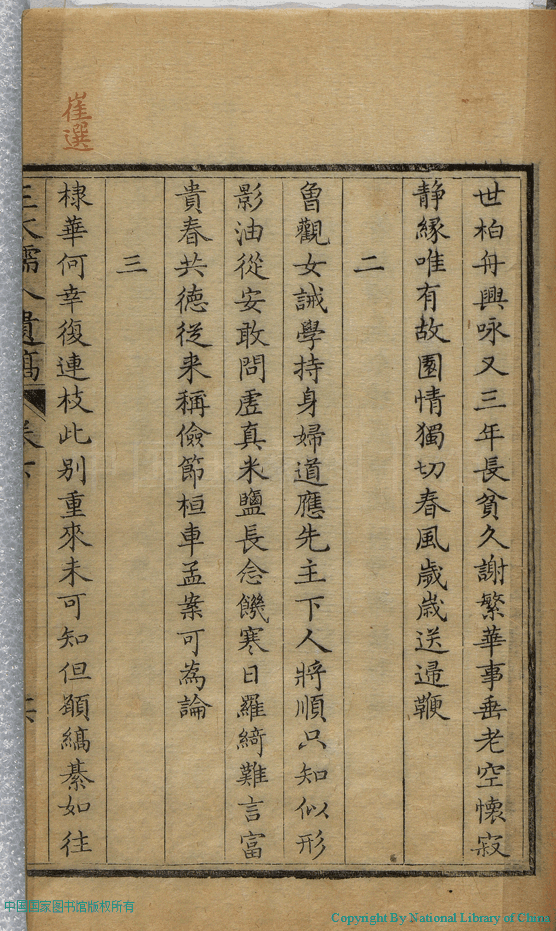 崔選
世柏舟興咏又三年長貧久謝繁華事垂老空懷寂
静緣唯有故園情獨切春風歲歲送歸鞭
二
曾觀女誡學持身婦道應先主下人將順只知似形
影油從安敢問虛真米鹽長念饑寒日羅綺難言富
貴春共德従来稱儉節桓車孟案可為論
三
棣華何幸復連枝此别重來未可知但願縞綦如往
孺人遺稿 卷下
中国国家图书馆版权所有
Copyright By National Library of China